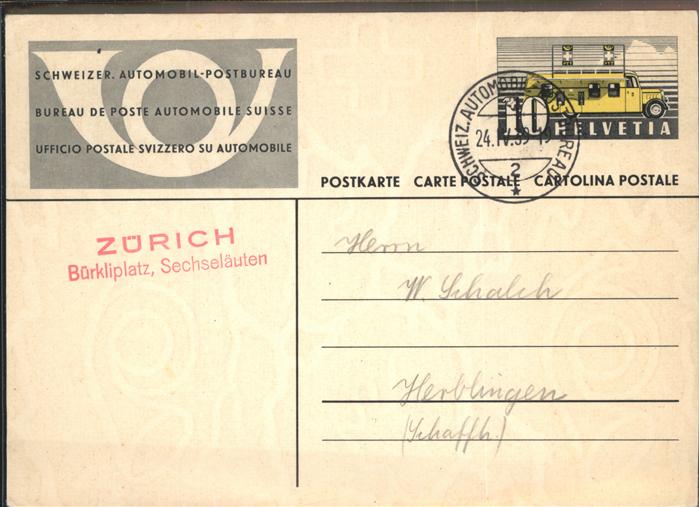 SCHWEIZER. AUTOMOBIL-POSTBUREAU
BUREAU DE POSTE AUTOMOBILE SUISSE
UFFICIO POSTALE SVIZZERO SU AUTOMOBILE
10
HELVETIA
24.IV.39-19
2
POSTKARTE CARTE POSTALE CARTOLINA POSTALE
ZÜRICH
Bürkliplatz, Sechseläuten
Herrn
W. Schalch
Herblingen
(Schaffh.)